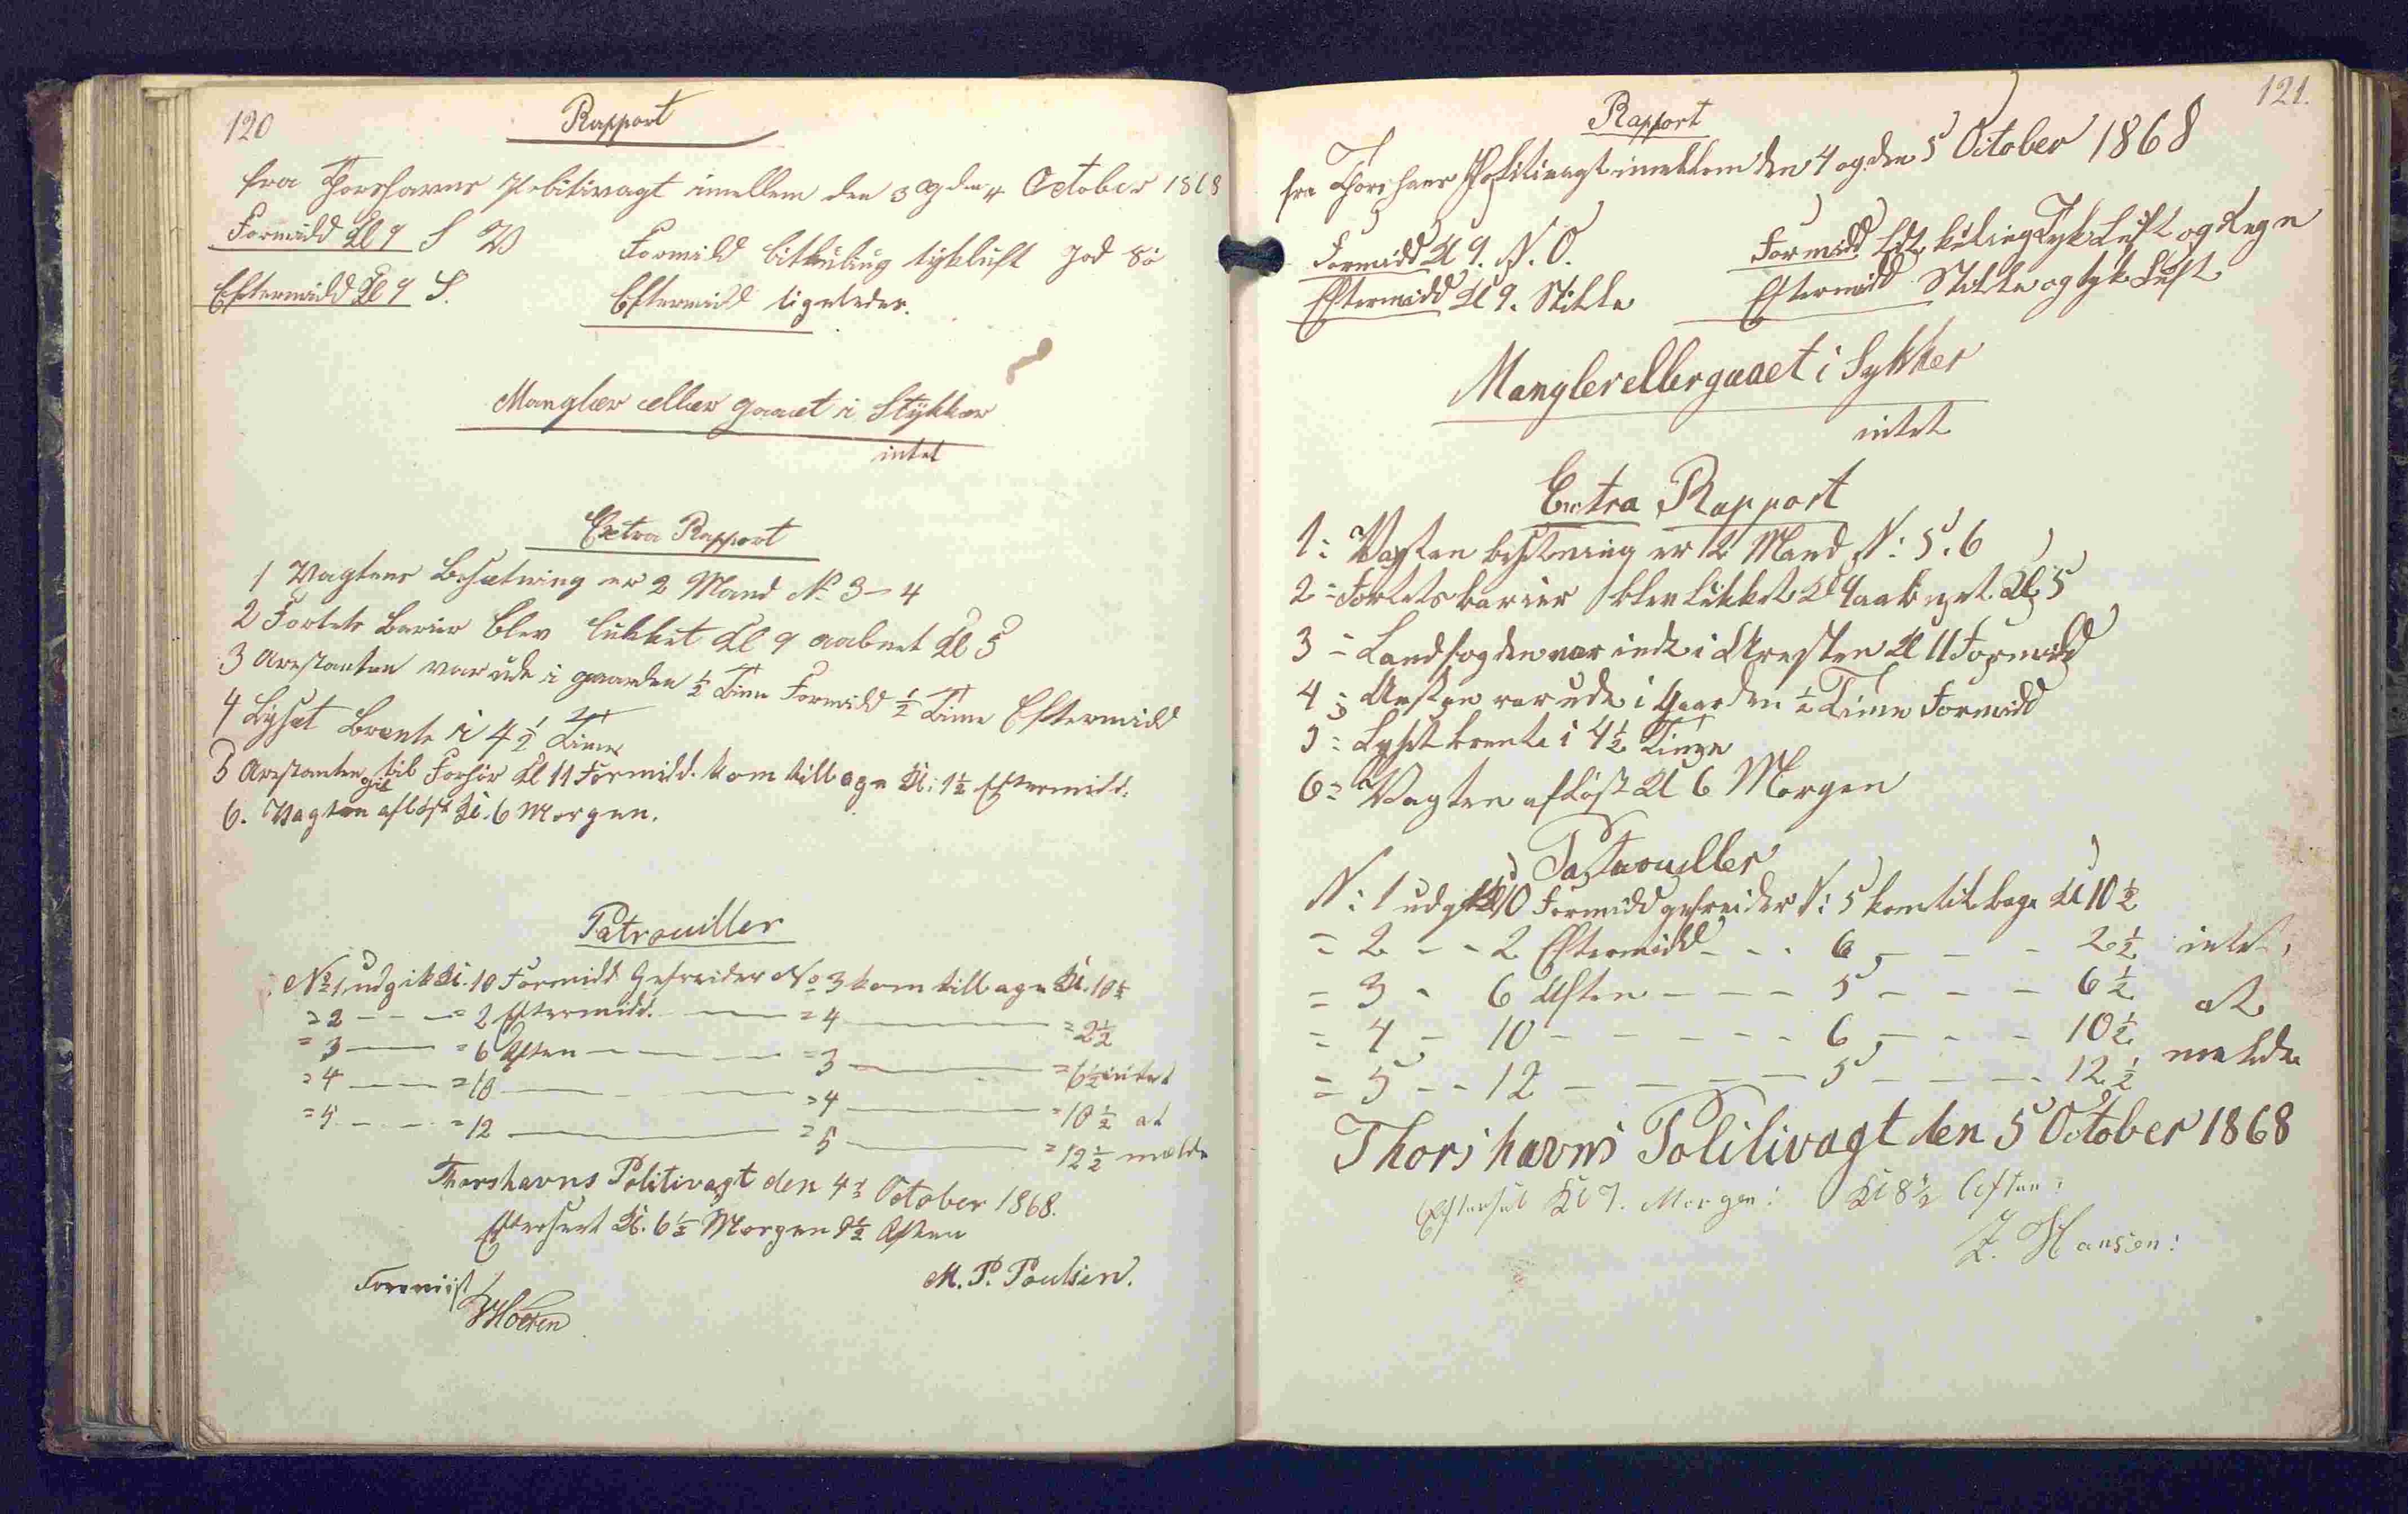 120
Rapport
fra Thorshavns Politivagt imellem den 3 og den 4 October 1868
Formidd Kl 9 S V
Formidd litkuling tykluft god Sö
Eftermidd Kl 9 S.
Eftermidd ligeledes.
Mangler eller gaaet i Stykker
intet
Extra Rapport
1 Vagtens Besætning er 2 Mand No 3 - 4
2 Fortets Barier blev lukket Kl 9 aabnet Kl 5
3 Arestanten var ude i gaarden ½ Time Formidd ½ Time Eftermidd
4 Lyset Brente i 4½ Time
5 Arestanten gik til Forhör Kl 11 Formidd. kom tilbage Kl: 1½ Eftermidd.
6. Vagten aflöst Kl. 6 Morgen.
Patrouiller
No 1 udgik Kl. 10 Formidd Gefreider No 3 kom tilbage Kl. 10½
= 2 - - = 2 Eftermidd. - = 4 - = 2½
= 3 - = 6 Aften - = 3 - = 6½ intet
= 4 - = 10 - = 4 - = 10½ at
= 5 - = 12 - = 5 - = 12½ melde
Thorshavns Politivagt den 4de October 1868.
Efterseet Kl. 6½ Morgen 9½ Aften
M. P. Poulsen.
Forevist
121.
Rapport
fra Thorshavns Politivagt imellem den 4 og den 5 October 1868
Formidd Kl 9. N. O.
Formidd. Lit kuling Tyk Luft og Regn
Eftermidd Kl 9. Stille
Eftermidd Stille og tyk Luft
Mangler eller gaaet i Sykker
intet
Extra Rapport
1: Vagten besetning er 2 Mand N: 5. 6
2 = Fortets barier blev lukket Kl 9 aabnet Kl 5
3 = Landfogden var inde i Aresten Kl 11 Formidd
4 = Aresten var ude i Gaarden ½ Time Formidd
5 = Lyset brente i 4½ Time
6 = Vagten aflöst Kl 6 Morgen
Patrouller
N: 1 udgik Kl 10 Formidd gefreider N: 5 kom tilbage Kl 10½
= 2 - - 2 Eftermidd - - - 6 - - - 2½ intet
= 3 - 6 Aften - - - 5 - - - 6½ at
= 4 - 10 - - - - - 6 - - - 10½
= 5 - - 12 - - - - 5 - - - 12½ melde
Thorshavns Politivagt den 5 October 1868
Efterset Kl 7. Morgen: Kl 8½ Aften:
Z. Hansen: